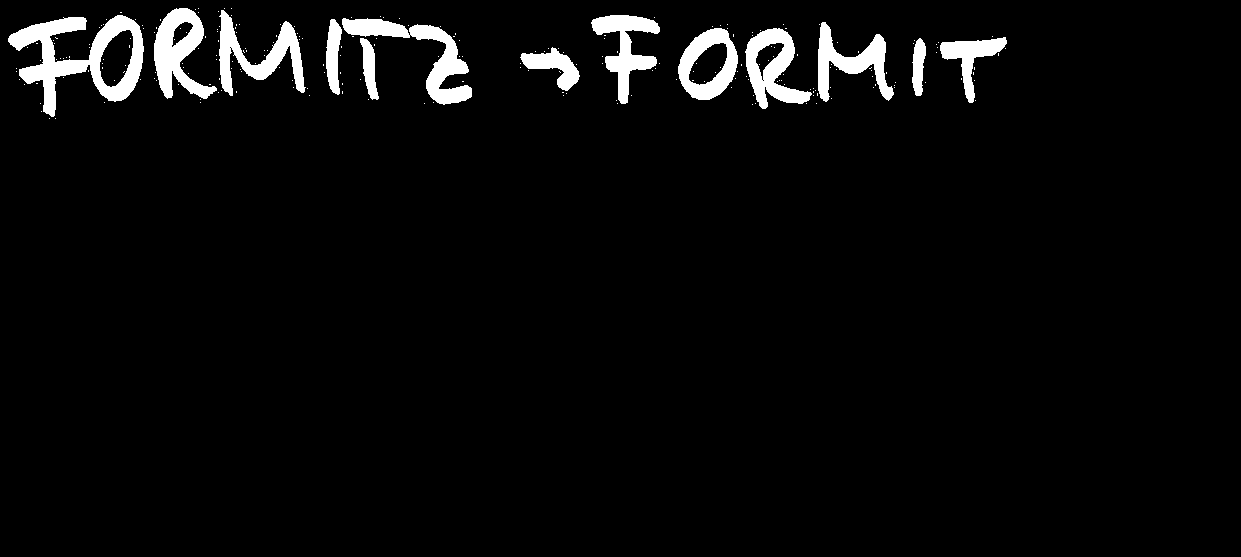 FORMITZ → FORMIT